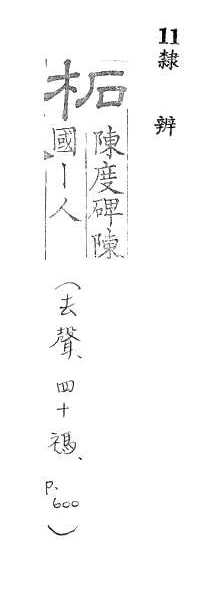 11隸辨
柘 陳度碑陳
國丨人
(去聲、四十禡、p.600)